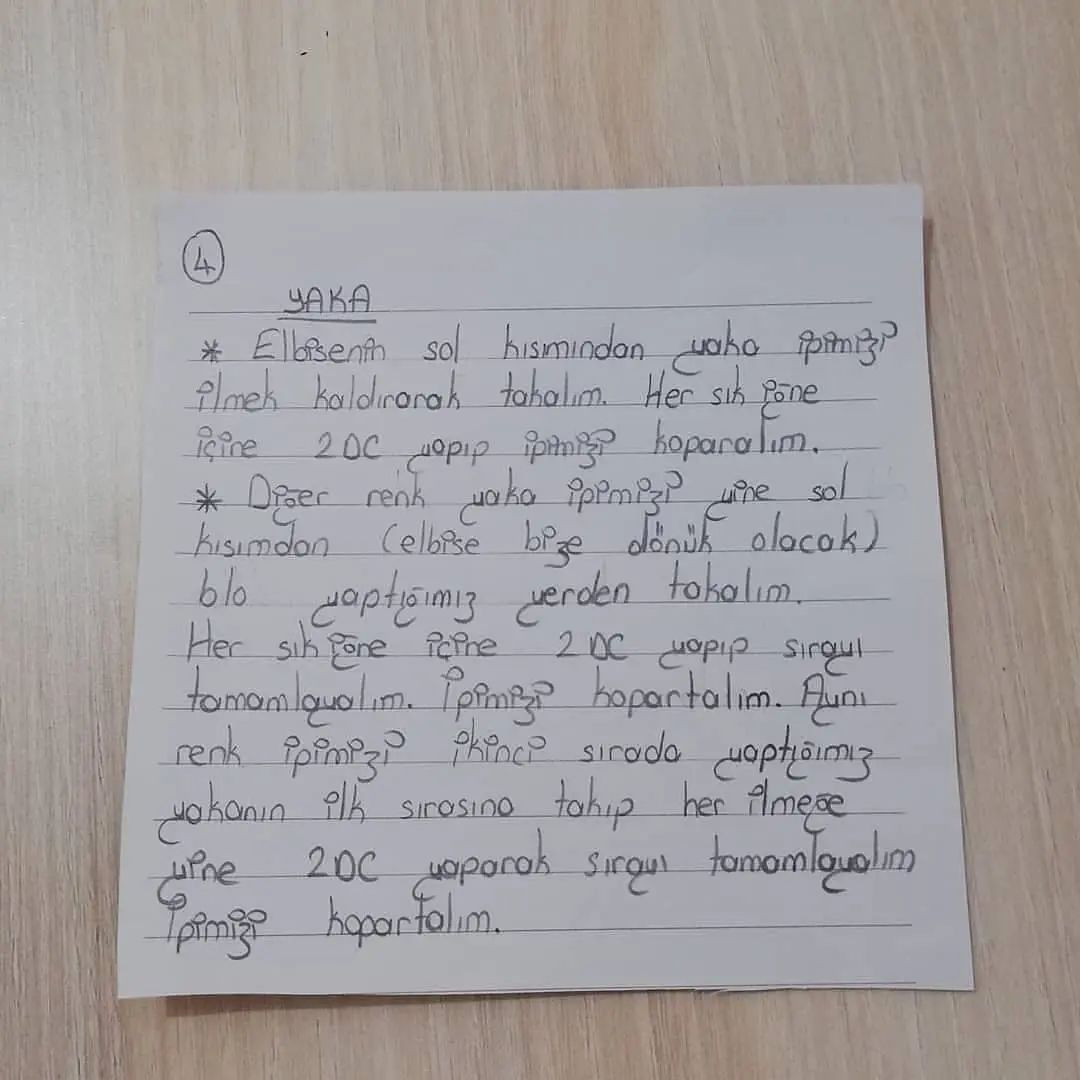 4
YAKA
* Elbisenin sol kısmından yaka ipimizi
ilmek kaldırarak takalım. Her sık iğne
içine 2 DC yapıp ipimizi koparalım.
* Diğer renk yaka ipimizi yine sol
kısımdan (elbise bize dönük olacak)
blo yaptığımız yerden takalım.
Her sık iğne içine 2 DC yapıp sırayı
tamamlayalım. İpimizi kopartalım. Aynı
renk ipimizi ikinci sırada yaptığımız
yakanın ilk sırasına takıp her ilmeğe
yine 2 DC yaparak sırayı tamamlayalım
İpimizi kopartalım.